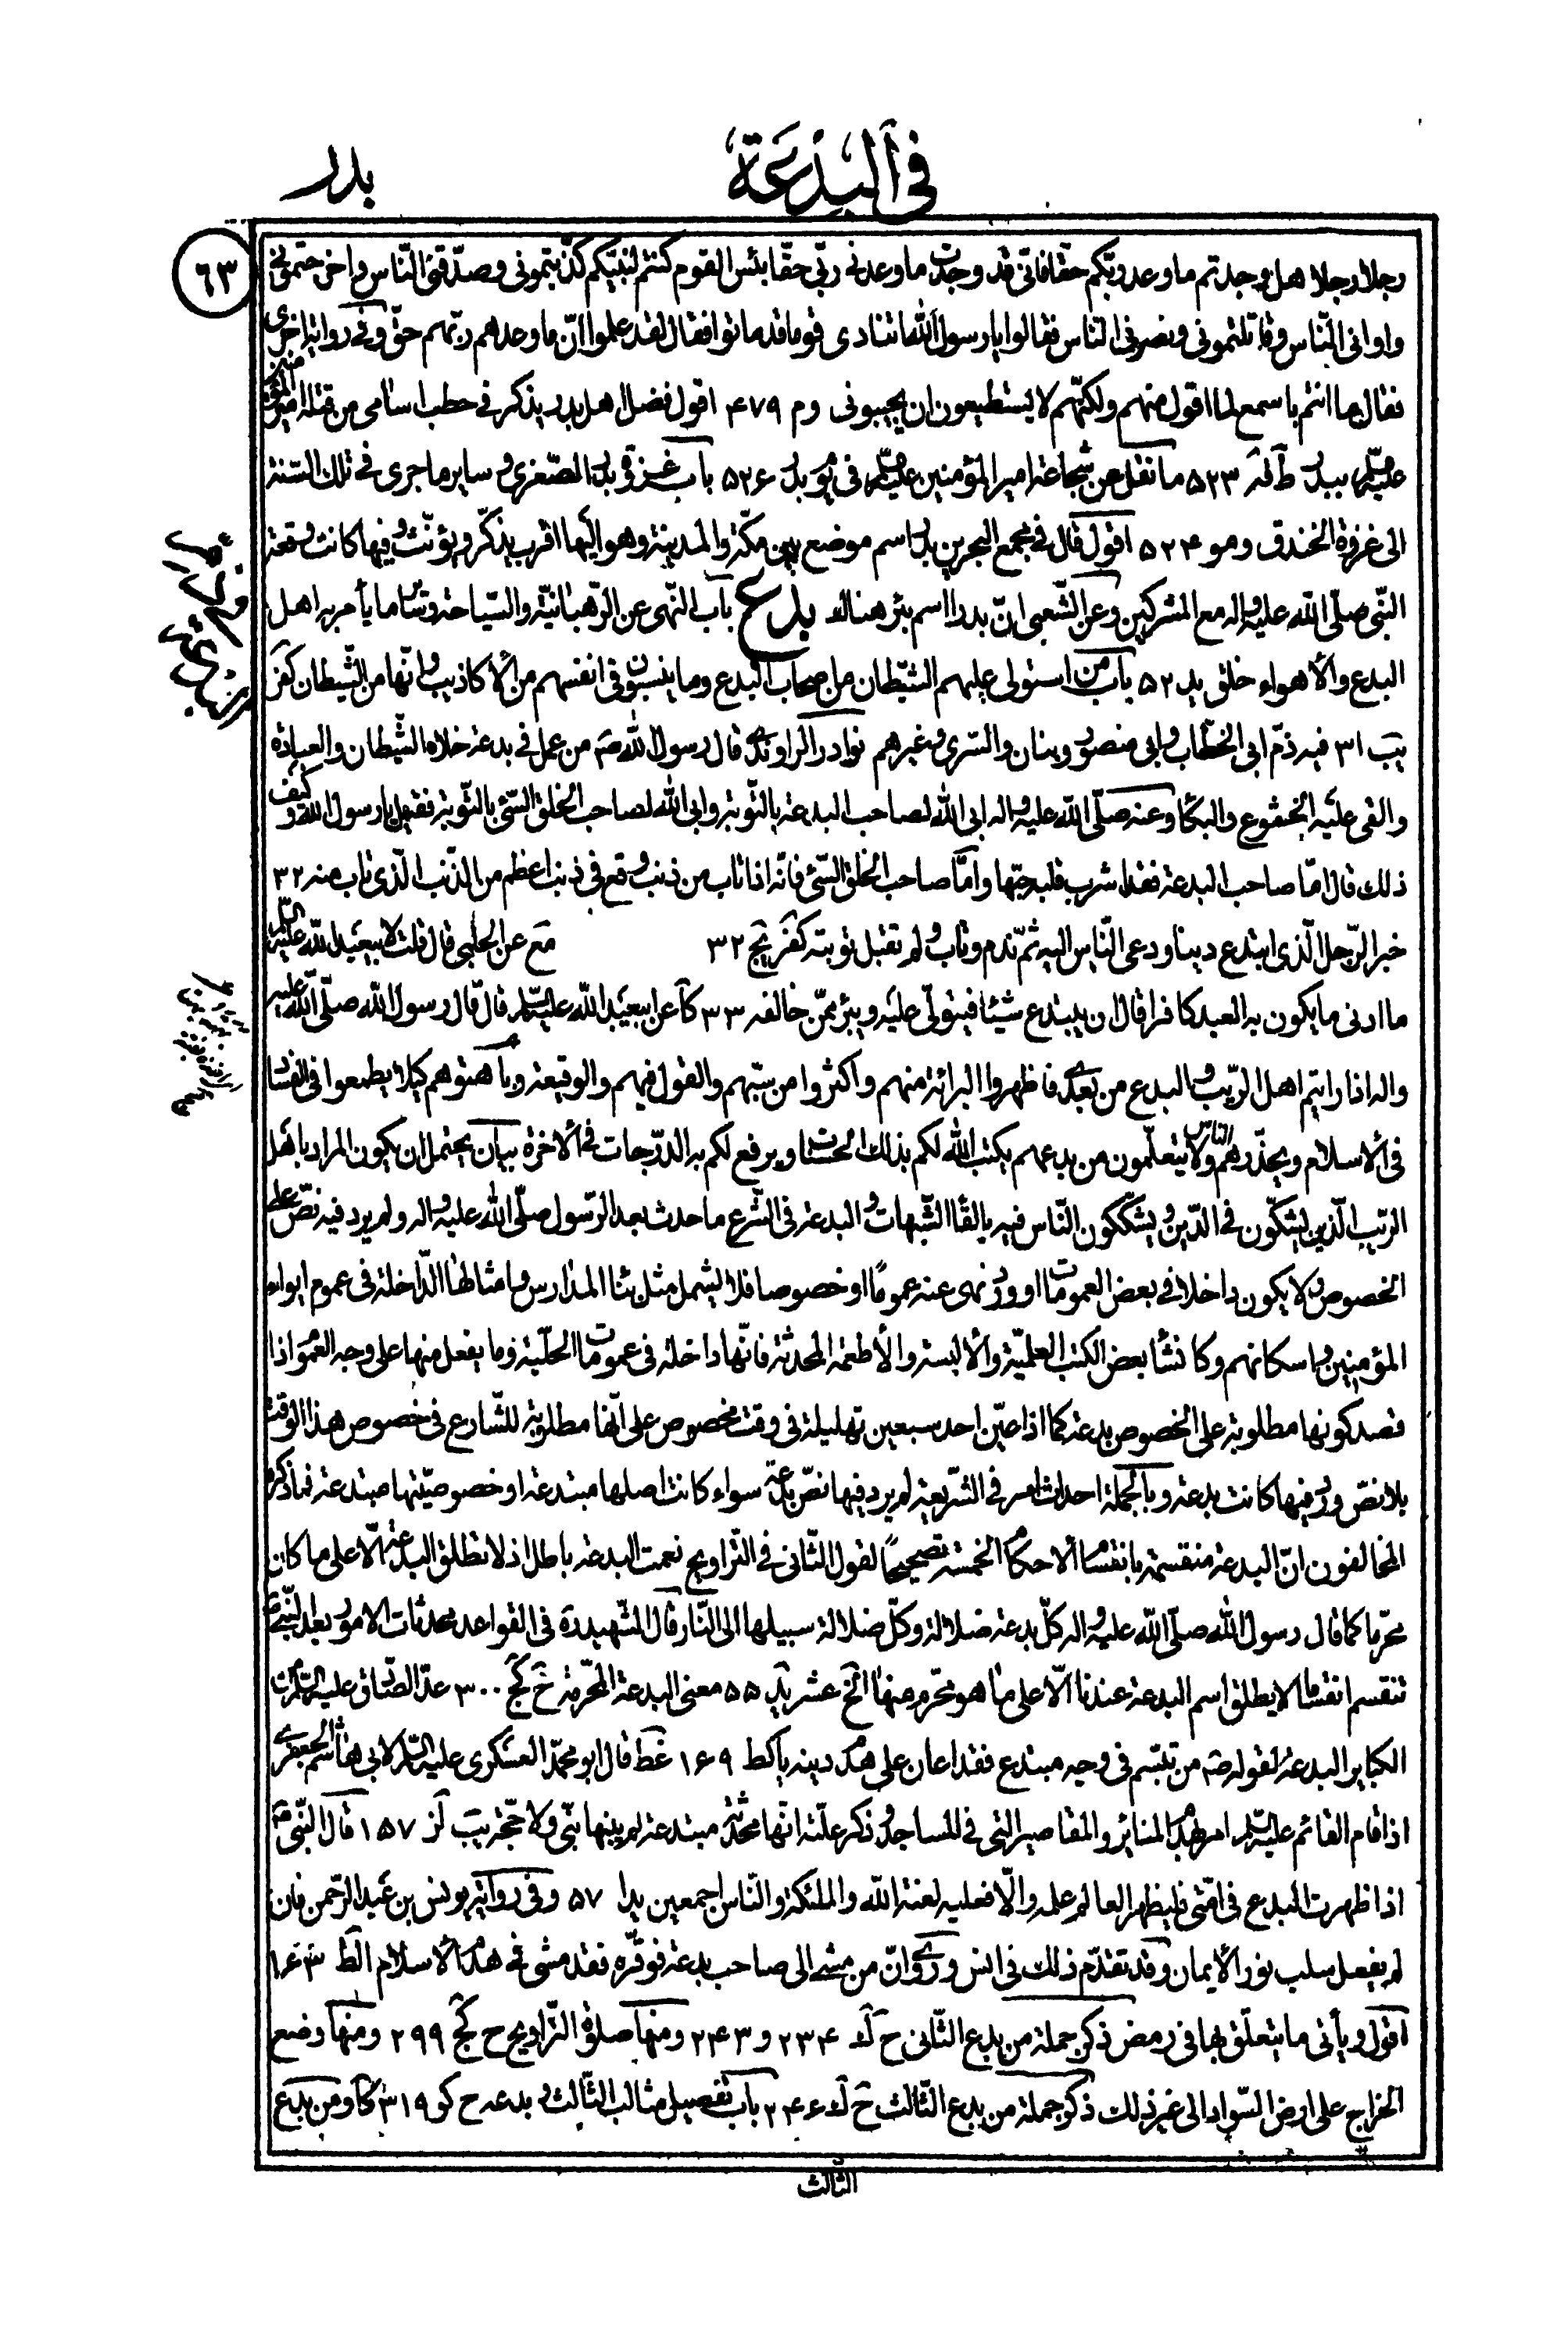 في البدعة
بدر
٦٣
رجلا رجلا هل وجدتم ما وعد ربكم حقا فاني قد وجدت ما وعدني ربي حقا بئس القوم كنتم لنبيكم كذبتموني وصدقني الناس واخرجتموني
واواني الناس وقاتلتموني ونصرني الناس فقالوا يا رسول الله اتنادى قوما قد ماتوا فقال لقد علموا ان ما وعدهم ربهم حق وفي رواية اخرى
فقال ما انتم باسمع لما اقول منهم ولكنهم لا يستطيعون ان يجيبوني وم ۴٧٩ اقول فضل اهل بدر يذكر في حطب اسامي من قتله امير المؤمنين
عليه السلم ببدر ط قه ۵٢٣ ما نقل من شجاعة امير المؤمنين عليه السلم في يوم بدر ۵٢۶ باب غزوة بدر الصغرى وساير ما جرى في تلك السنة
الى غزوة الخندق ومو ۵٢۴ اقول قال في مجمع البحرين بدر اسم موضع بين مكة والمدينة وهو اليها اقرب يذكر ويؤنث وفيها كانت وقعة
النبي صلى الله عليه واله مع المشركين وعن الشعبي ان بدرا اسم بئر هناك بدع باب النهى عن الرهبانية والسياحة وساير ما يأمر به اهل
البدع والأهواء خلق يد ۵٢ باب من استولى عليهم الشيطان من اصحاب البدع وما ينسبون في انفسهم من الأكاذيب وانها من الشيطان كفر
يب ٣١ فيه ذم ابي الخطاب وابي منصور وبنان والسرى وغيرهم نوادر الراوندي قال رسول الله ص من عمل في بدعة خلاه الشيطان والعبادة
والقى عليه الخشوع والبكاء وعنه صلى الله عليه واله ابى الله لصاحب البدعة بالتوبة وابى الله لصاحب الخلق السيئ بالتوبة فقيل يا رسول الله وكيف
ذلك قال اما صاحب البدعة فقد اشرب قلبه حبها واما صاحب الخلق السيئ فانه اذا تاب من ذنب وقع في ذنب اعظم من الذنب الذي تاب منه ٣٢
خبر الرجل الذي ابتدع دينا ودعى الناس اليه ثم ندم وتاب ولم تقبل توبته كفر يج ٣٢ مع عن الحلبي قال قلت لابيعبد الله عليه السلم
ما ادنى ما يكون به العبد كافرا قال ان يبتدع شيئا فيتولى عليه ويبرئ ممن خالفه ٣٣ كا عن ابيعبد الله عليه السلم قال قال رسول الله صلى الله عليه
واله اذا رايتم اهل الريب والبدع من بعدي فاظهروا البرائة منهم واكثروا من سبهم والقول فيهم والوقيعة وباهتوهم كيلا يطمعوا في الفساد
في الاسلام ويحذرهم الناس ولا يتعلمون من بدعهم يكتب الله لكم بذلك الحسنات ويرفع لكم به الدرجات في الاخرة بيان يحتمل ان يكون المراد باهل
الريب الذين يشكون في الدين ويشككون الناس فيه بالقاء الشبهات والبدعة في الشرع ما حدث بعد الرسول صلى الله عليه واله ولم يرد فيه نص على
الخصوص ولا يكون داخلا في بعض العمومات او ورد نهى عنه عموما او خصوصا فلا يشمل مثل بناء المدارس وامثالها الداخلة في عموم ايواء
المؤمنين واسكانهم وكانشاء بعض الكتب العلمية والألبسة والأطعمة المحدثة فانها داخلة في عمومات الحلية وما يفعل منها على وجه العموم اذا
قصد كونها مطلوبة على الخصوص بدعة كما اذا عين احد سبعين تهليلة في وقت مخصوص على انها مطلوبة للشارع في خصوص هذا الوقت
بلا نص ورد فيها كانت بدعة وبالجملة احداث امر في الشريعة لم يرد فيها نص بدعة سواء كانت اصلها مبتدعة او خصوصيتها مبتدعة فما ذكره
المخالفون ان البدعة منقسمة بانقسام الاحكام الخمسة تصحيحا لقول الثاني في التراويح نعمت البدعة باطل اذ لا تطلق البدعة الا على ما كان
محرما كما قال رسول الله صلى الله عليه واله كل بدعة ضلالة وكل ضلالة سبيلها الى النار قال الشهيد ره في القواعد محدثات الامور بعد النبي ص
تنقسم اقساما لا يطلق اسم البدعة عندنا الا على ما هو محرم منها الخ عشر يد ۵۵ معنى البدعة المحرمة ح كج ٣٠٠ عد الصادق عليه السلم من
الكبائر البدعة لقوله ص من تبسم في وجه مبتدع فقد اعان على هدم دينه يا كط ١۶٩ غط قال ابو محمد العسكري عليه السلم لابي هاشم الجعفري
اذا قام القائم عليه السلم امر بهدم المنائر والمقاصير التي في المساجد وذكر علته انها محدثة مبتدعة لم يبنها نبي ولا حجة يب لز ١۵٧ قال النبي ص
اذا ظهرت البدع في امتي فليظهر العالم علمه والا فعليه لعنة الله والملئكة والناس اجمعين يدا ۵٧ وفي رواية يونس بن عبد الرحمن فان
لم يفعل سلب نور الأيمان وقد تقدم ذلك في انس وروي وان من مشى الى صاحب بدعة فوقره فقد مشى في هدم الاسلام الط ١۶٣
اقول ويأتي ما يتعلق بها في رمض ذكر جملة من بدع الثاني ح لا ٢٣۴ و ٢۴٣ ومنها صلوة التراويح ح كج ٢٩٩ ومنها وضع
الخراج على ارض السواد الى غير ذلك ذكر جملة من بدع الثالث ح لا ٢۴۶ باب تفصيل مثالب الثالث وبدعه ح كو ٣١٩ كا ومن بدع
الثالث